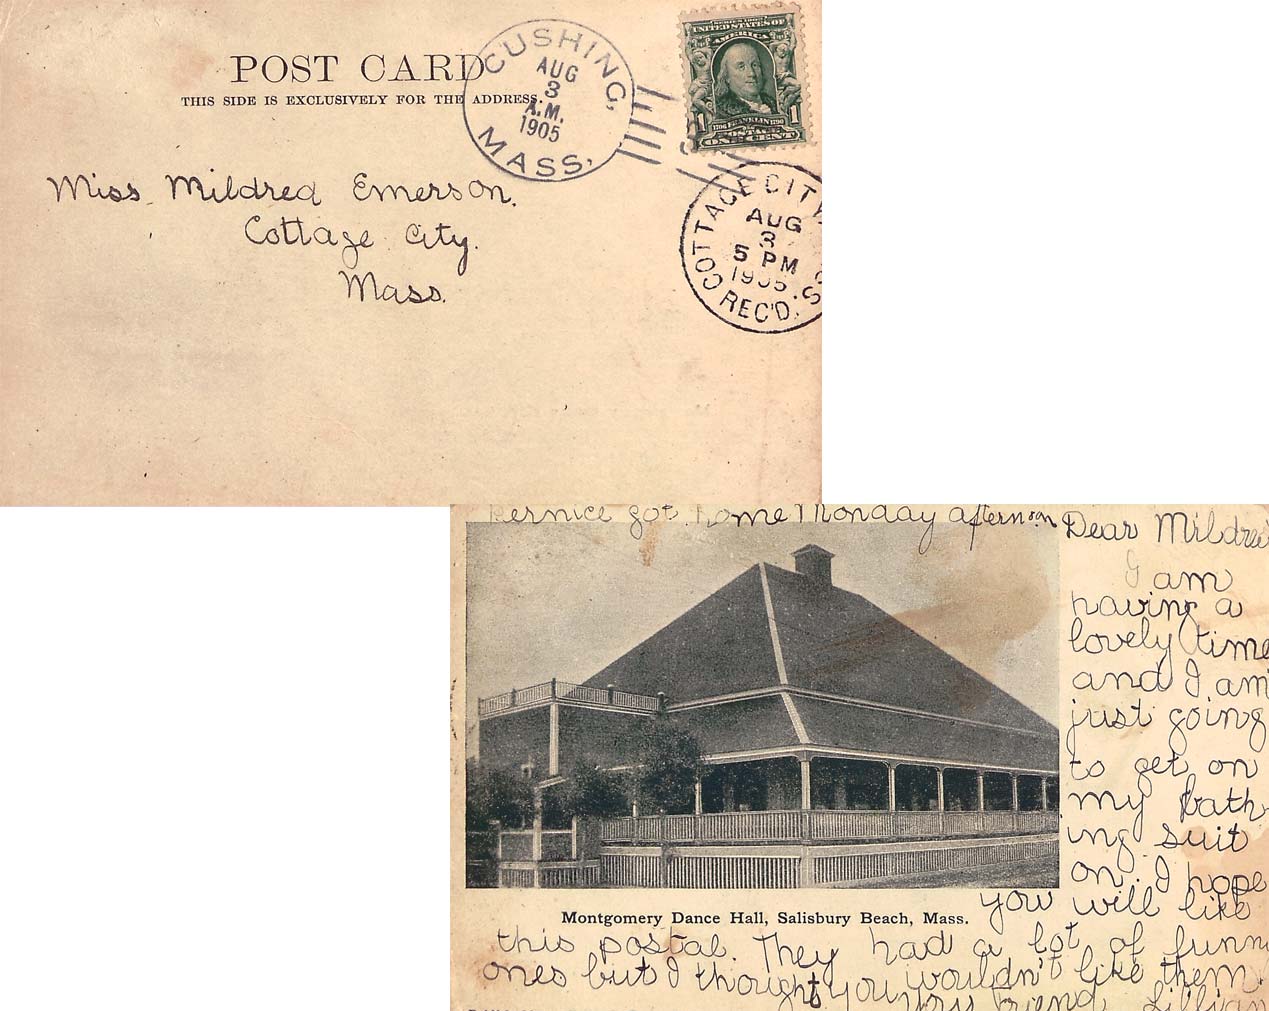 POST CARD
THIS SIDE IS EXCLUSIVELY FOR THE ADDRESS.
CUSHING,
AUG
3
A.M.
1905
MASS.
SERIES 1902
UNITED STATES OF
AMERICA
1706 FRANKLIN 1790
1 POSTAGE 1
ONE CENT
Miss Mildred Emerson.
Cottage City.
Mass.
COTTAGE CITY
AUG
3
5 PM
1905
REC'D.
Bernice got home Monday afternoon
Dear Mildred
I am
having a
lovely time
and I am
just going
to get on
my bath-
ing suit
on. I hope
you will like
this postal. They had a lot of funny
ones but I thought you wouldn't like them.
Your friend Lillian
Montgomery Dance Hall, Salisbury Beach, Mass.